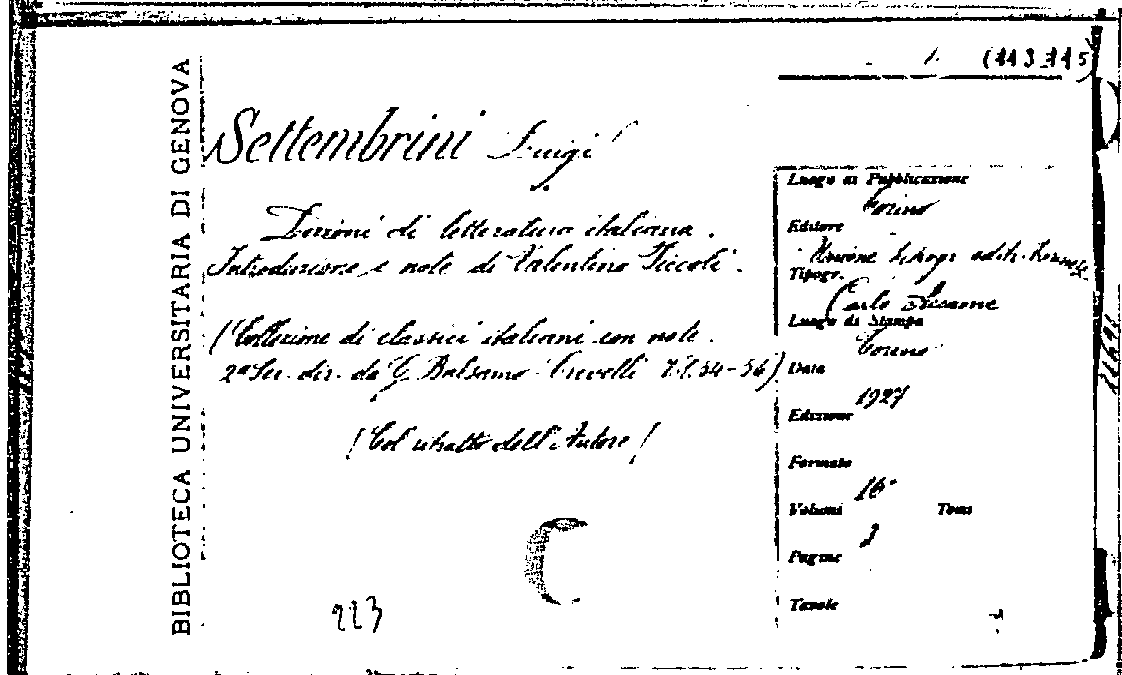 (113-115)
BIBLIOTECA UNIVERSITARIA DI GENOVA
Settembrini Luigi
Lezioni di letteratura italiana.
Introduzione e note di Valentino Piccoli.
(Collezione di classici italiani con note.
2ª Ser. dir. da G. Balsamo Crivelli 54-56)
(Col ritratto dell'Autore)
223
Luogo di Pubblicazione
Torino
Editore
Unione tipogr. edit. torinese
Tipogr.
Carlo
Luogo di Stampa
Torino
Data
1927
Edizione
Formato
16°
Volumi Tomi
3
Pagine
Tavole